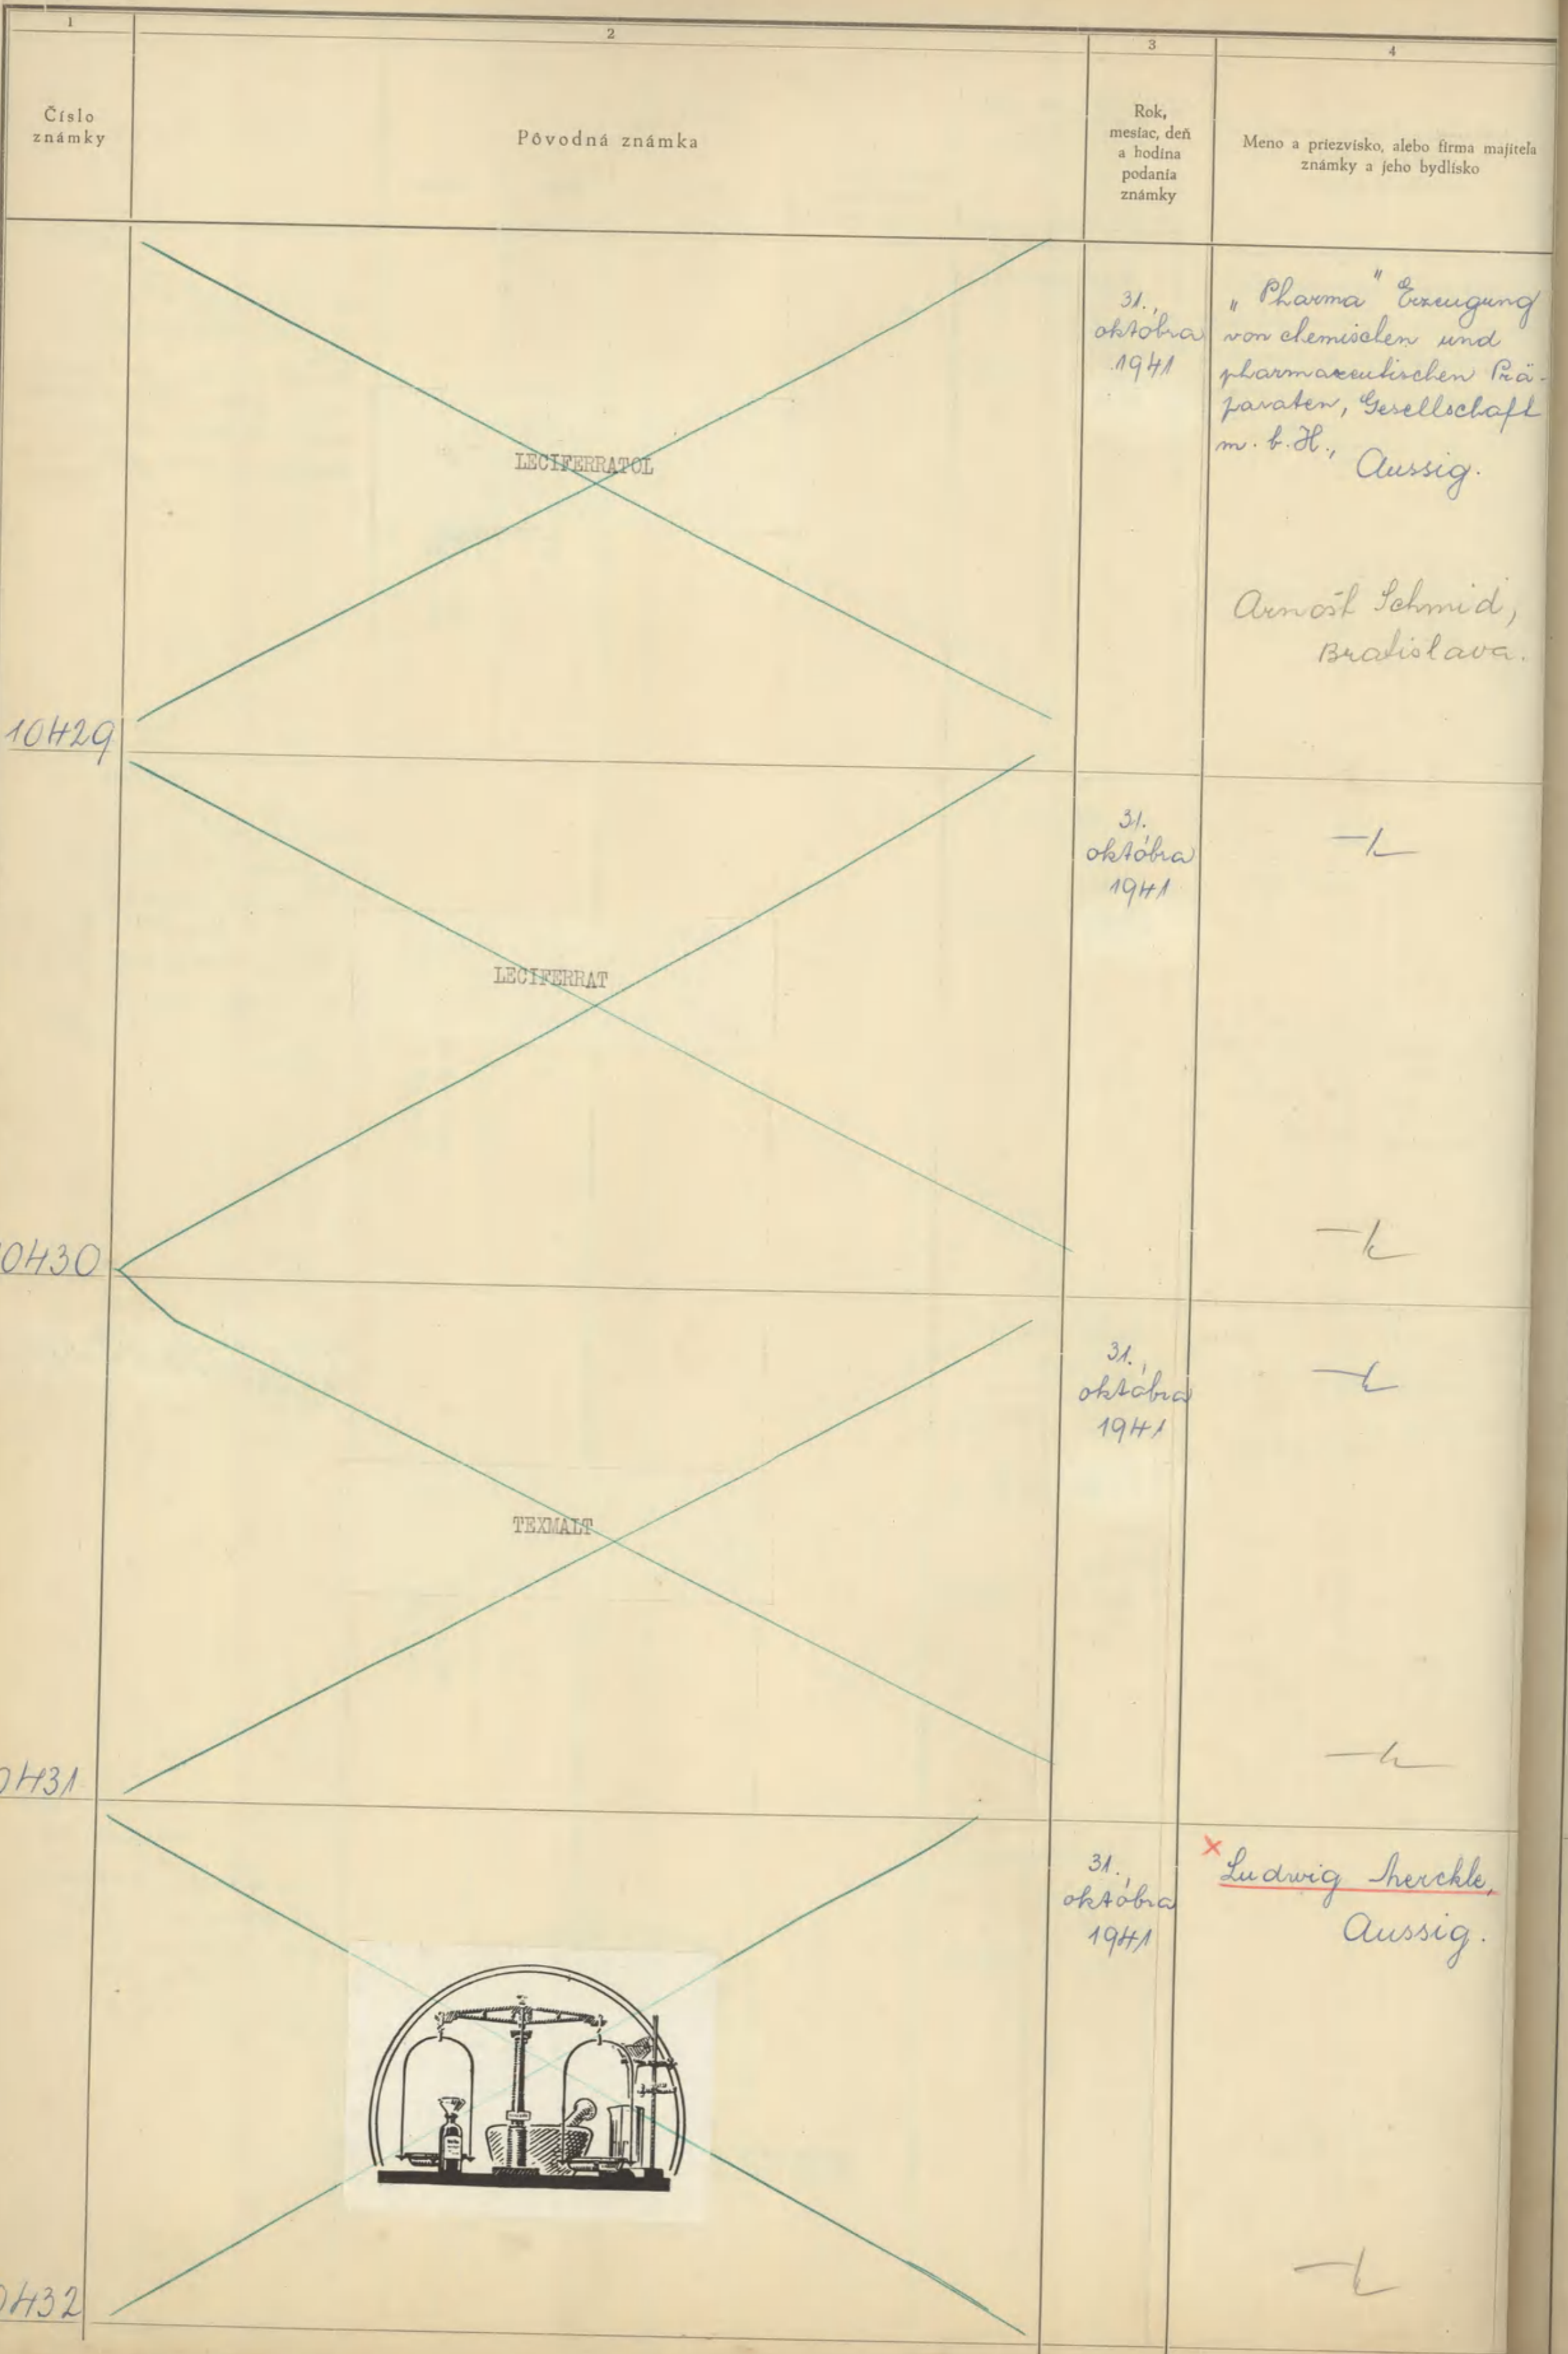 1
2
3
4
Číslo
známky
Pôvodná známka
Rok,
mesiac, deň
a hodina
podania
známky
Meno a priezvisko, alebo firma majiteľa
známky a jeho bydlisko
10429
LECIFERRATOL
31.,
októbra
1941
„Pharma" Erzeugung
von chemischen und
pharmazeutischen Prä-
paraten, Gesellschaft
m. b. H.,
Aussig.
Arnošt Schmid,
Bratislava.
0430
LECIFERRAT
31.
októbra
1941
0431
TEXMALT
31.,
októbra
1941
0432
31.,
októbra
1941
Ludwig Merckle,
Aussig.